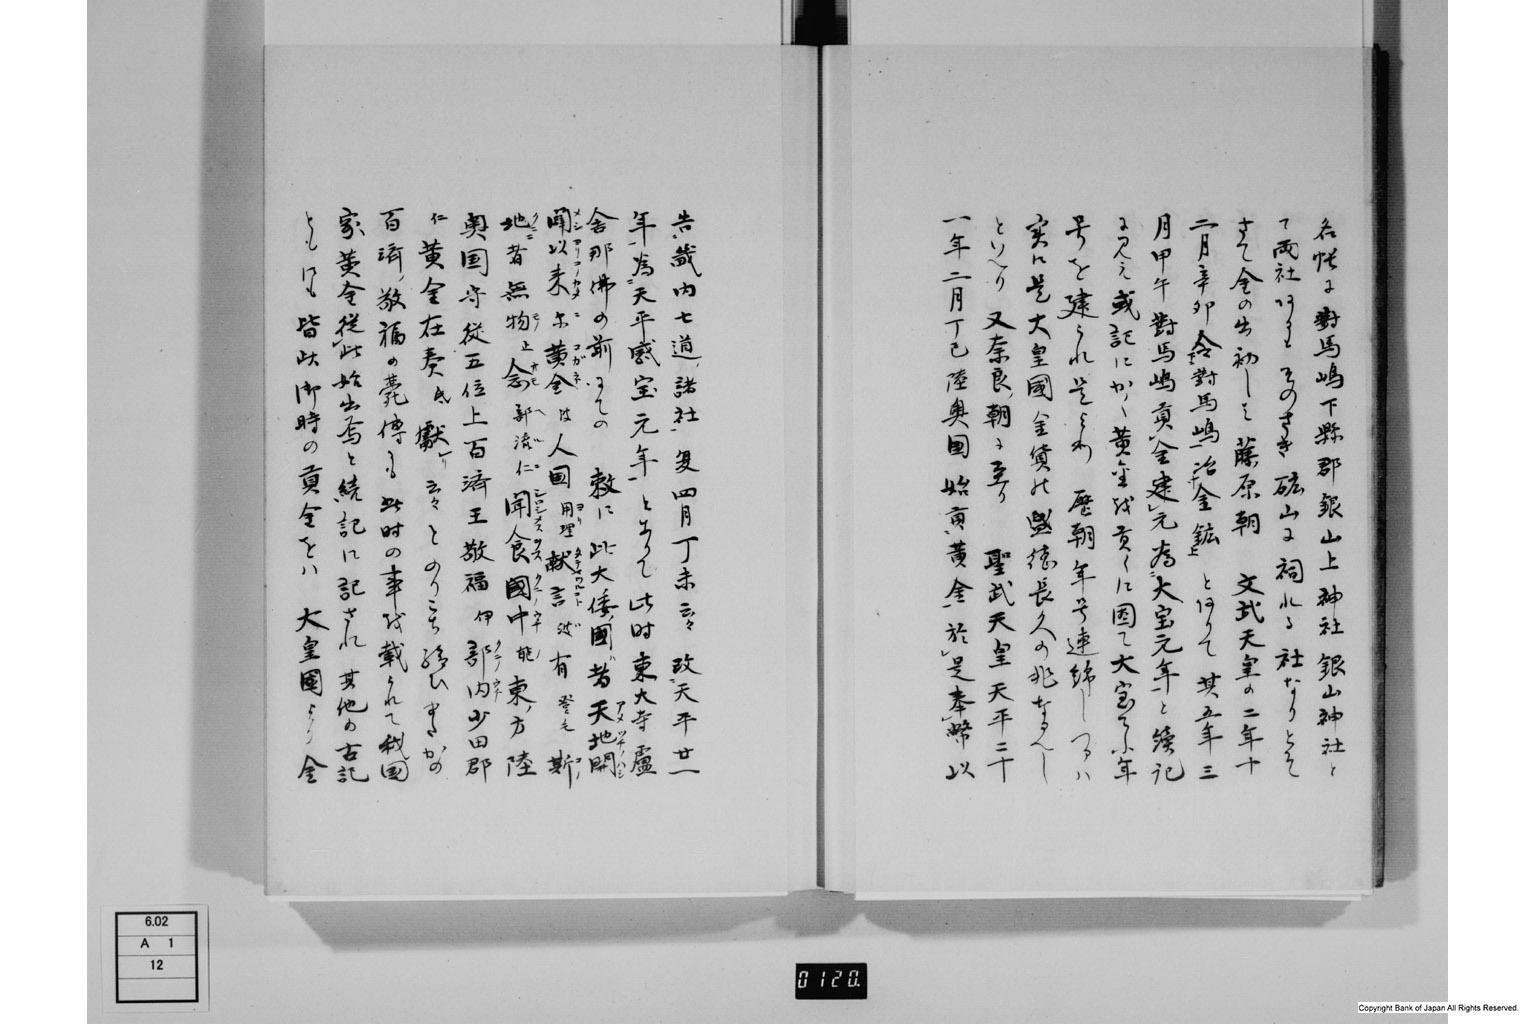 名帳に對馬嶋下縣郡銀山上神社銀山神社と
て両社ありそのさき砿山に祠れる社なりとそ
さて金の出初しは藤原朝 文武天皇の二年十
二月辛卯令對馬嶋冶金鉱とありて其五年三
月甲午對馬嶋貢金建元為大宝元年と続記
に見え或記にかく黄金を貢くに因て大宝てふ年
号を建られ是より 歴朝年号連綿しつるは
実に是大皇國金貨の盛徳長久の兆なるへし
といへり 又奈良朝に至り 聖武天皇天平二十
一年二月丁巳陸奥国始貢黄金於是奉幣以
告畿内七道諸社夏四月丁未云々改天平廿一
年為天平感宝元年とありて此时東大寺盧
舎那佛の前にての 敕に此大倭國者天地開
闢以来尓黄金は人国用理献言波有登毛斯
地者無物止念部流仁聞食國中能東方陸
奥国守従五位上百済王敬福伊部内少田郡
仁黄金在奏氐献云々とのりこち給ひまたかの
百済敬福の薨傳にも此时の事を載られて我国
家黄金従此始出焉と続記に記され其他の古記
ともにも皆此御時の貢金をは 大皇國より金
6.02
A 1
12
0120.
Copyright Bank of Japan All Rights Reserved.